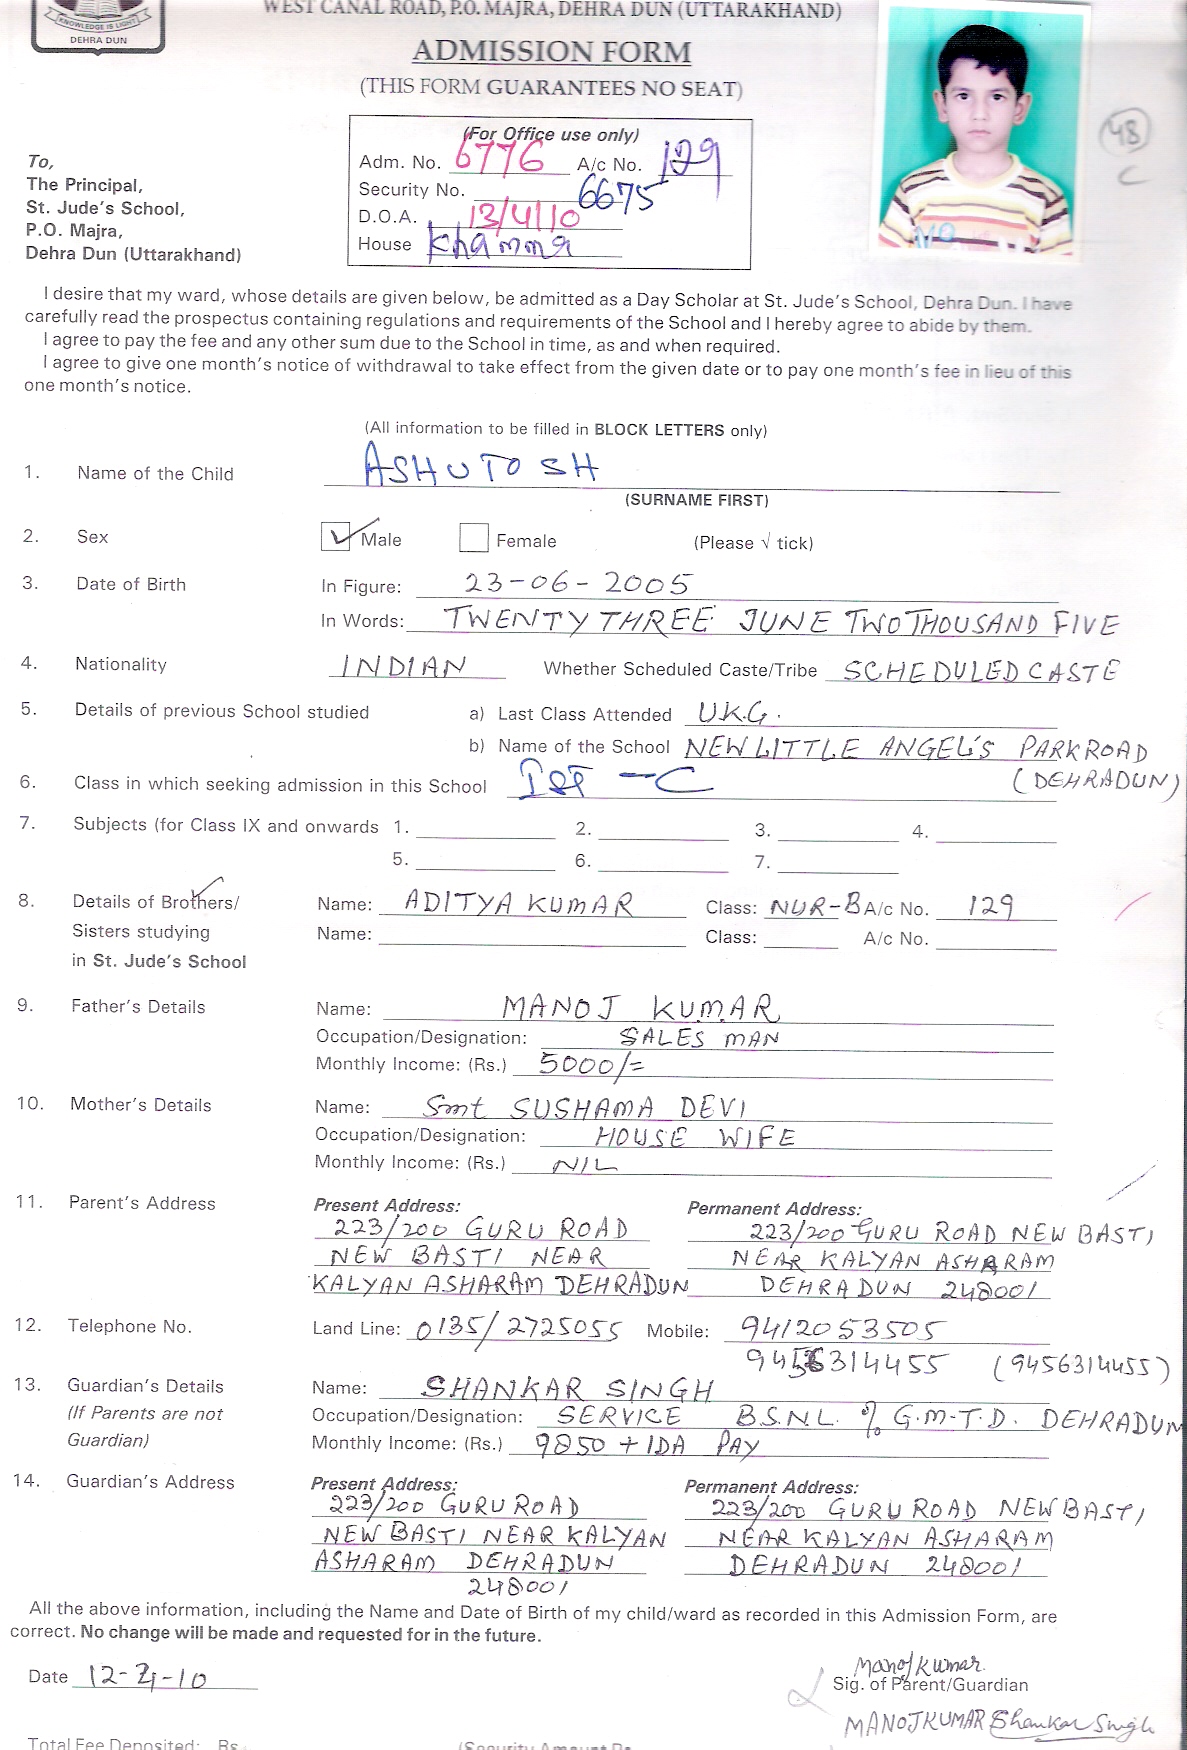 KNOWLEDGE IS LIGHT
DEHRA DUN
WEST CANAL ROAD, P.O. MAJRA, DEHRA DUN (UTTARAKHAND)
ADMISSION FORM
(THIS FORM GUARANTEES NO SEAT)
48
C
(For Office use only)
Adm. No. 6776 A/c No. 129
Security No. 6675
D.O.A. 13/4/10
House Khamma
To,
The Principal,
St. Jude's School,
P.O. Majra,
Dehra Dun (Uttarakhand)
I desire that my ward, whose details are given below, be admitted as a Day Scholar at St. Jude's School, Dehra Dun. I have
carefully read the prospectus containing regulations and requirements of the School and I hereby agree to abide by them.
I agree to pay the fee and any other sum due to the School in time, as and when required.
I agree to give one month's notice of withdrawal to take effect from the given date or to pay one month's fee in lieu of this
one month's notice.
(All information to be filled in BLOCK LETTERS only)
1. Name of the Child ASHUTOSH
(SURNAME FIRST)
2. Sex Male Female (Please √ tick)
3. Date of Birth In Figure: 23-06-2005
In Words: TWENTY THREE JUNE TWO THOUSAND FIVE
4. Nationality INDIAN Whether Scheduled Caste/Tribe SCHEDULED CASTE
5. Details of previous School studied a) Last Class Attended U.K.G.
b) Name of the School NEW LITTLE ANGEL'S PARK ROAD
(DEHRADUN)
6. Class in which seeking admission in this School Ist - C
7. Subjects (for Class IX and onwards 1. 2. 3. 4.
5. 6. 7.
8. Details of Brothers/ Name: ADITYA KUMAR Class: NUR-B A/c No. 129
Sisters studying Name: Class: A/c No.
in St. Jude's School
9. Father's Details Name: MANOJ KUMAR
Occupation/Designation: SALES MAN
Monthly Income: (Rs.) 5000/=
10. Mother's Details Name: Smt SUSHAMA DEVI
Occupation/Designation: HOUSE WIFE
Monthly Income: (Rs.) NIL
11. Parent's Address Present Address: Permanent Address:
223/200 GURU ROAD 223/200 GURU ROAD NEW BASTI
NEW BASTI NEAR NEAR KALYAN ASHARAM
KALYAN ASHARAM DEHRADUN DEHRADUN 248001
12. Telephone No. Land Line: 0135/2725055 Mobile: 9412053505
9456314455 (9456314455)
13. Guardian's Details Name: SHANKAR SINGH
(If Parents are not Occupation/Designation: SERVICE B.S.N.L. % G.M-T.D. DEHRADUN
Guardian) Monthly Income: (Rs.) 9850 + IDA PAY
14. Guardian's Address Present Address: Permanent Address:
223/200 GURU ROAD 223/200 GURU ROAD NEW BASTI
NEW BASTI NEAR KALYAN NEAR KALYAN ASHARAM
ASHARAM DEHRADUN DEHRADUN 248001
248001
All the above information, including the Name and Date of Birth of my child/ward as recorded in this Admission Form, are
correct. No change will be made and requested for in the future.
Date 12-4-10 Manoj Kumar.
Sig. of Parent/Guardian
MANOJ KUMAR Shankar Singh
Total Fee Deposited: Rs.